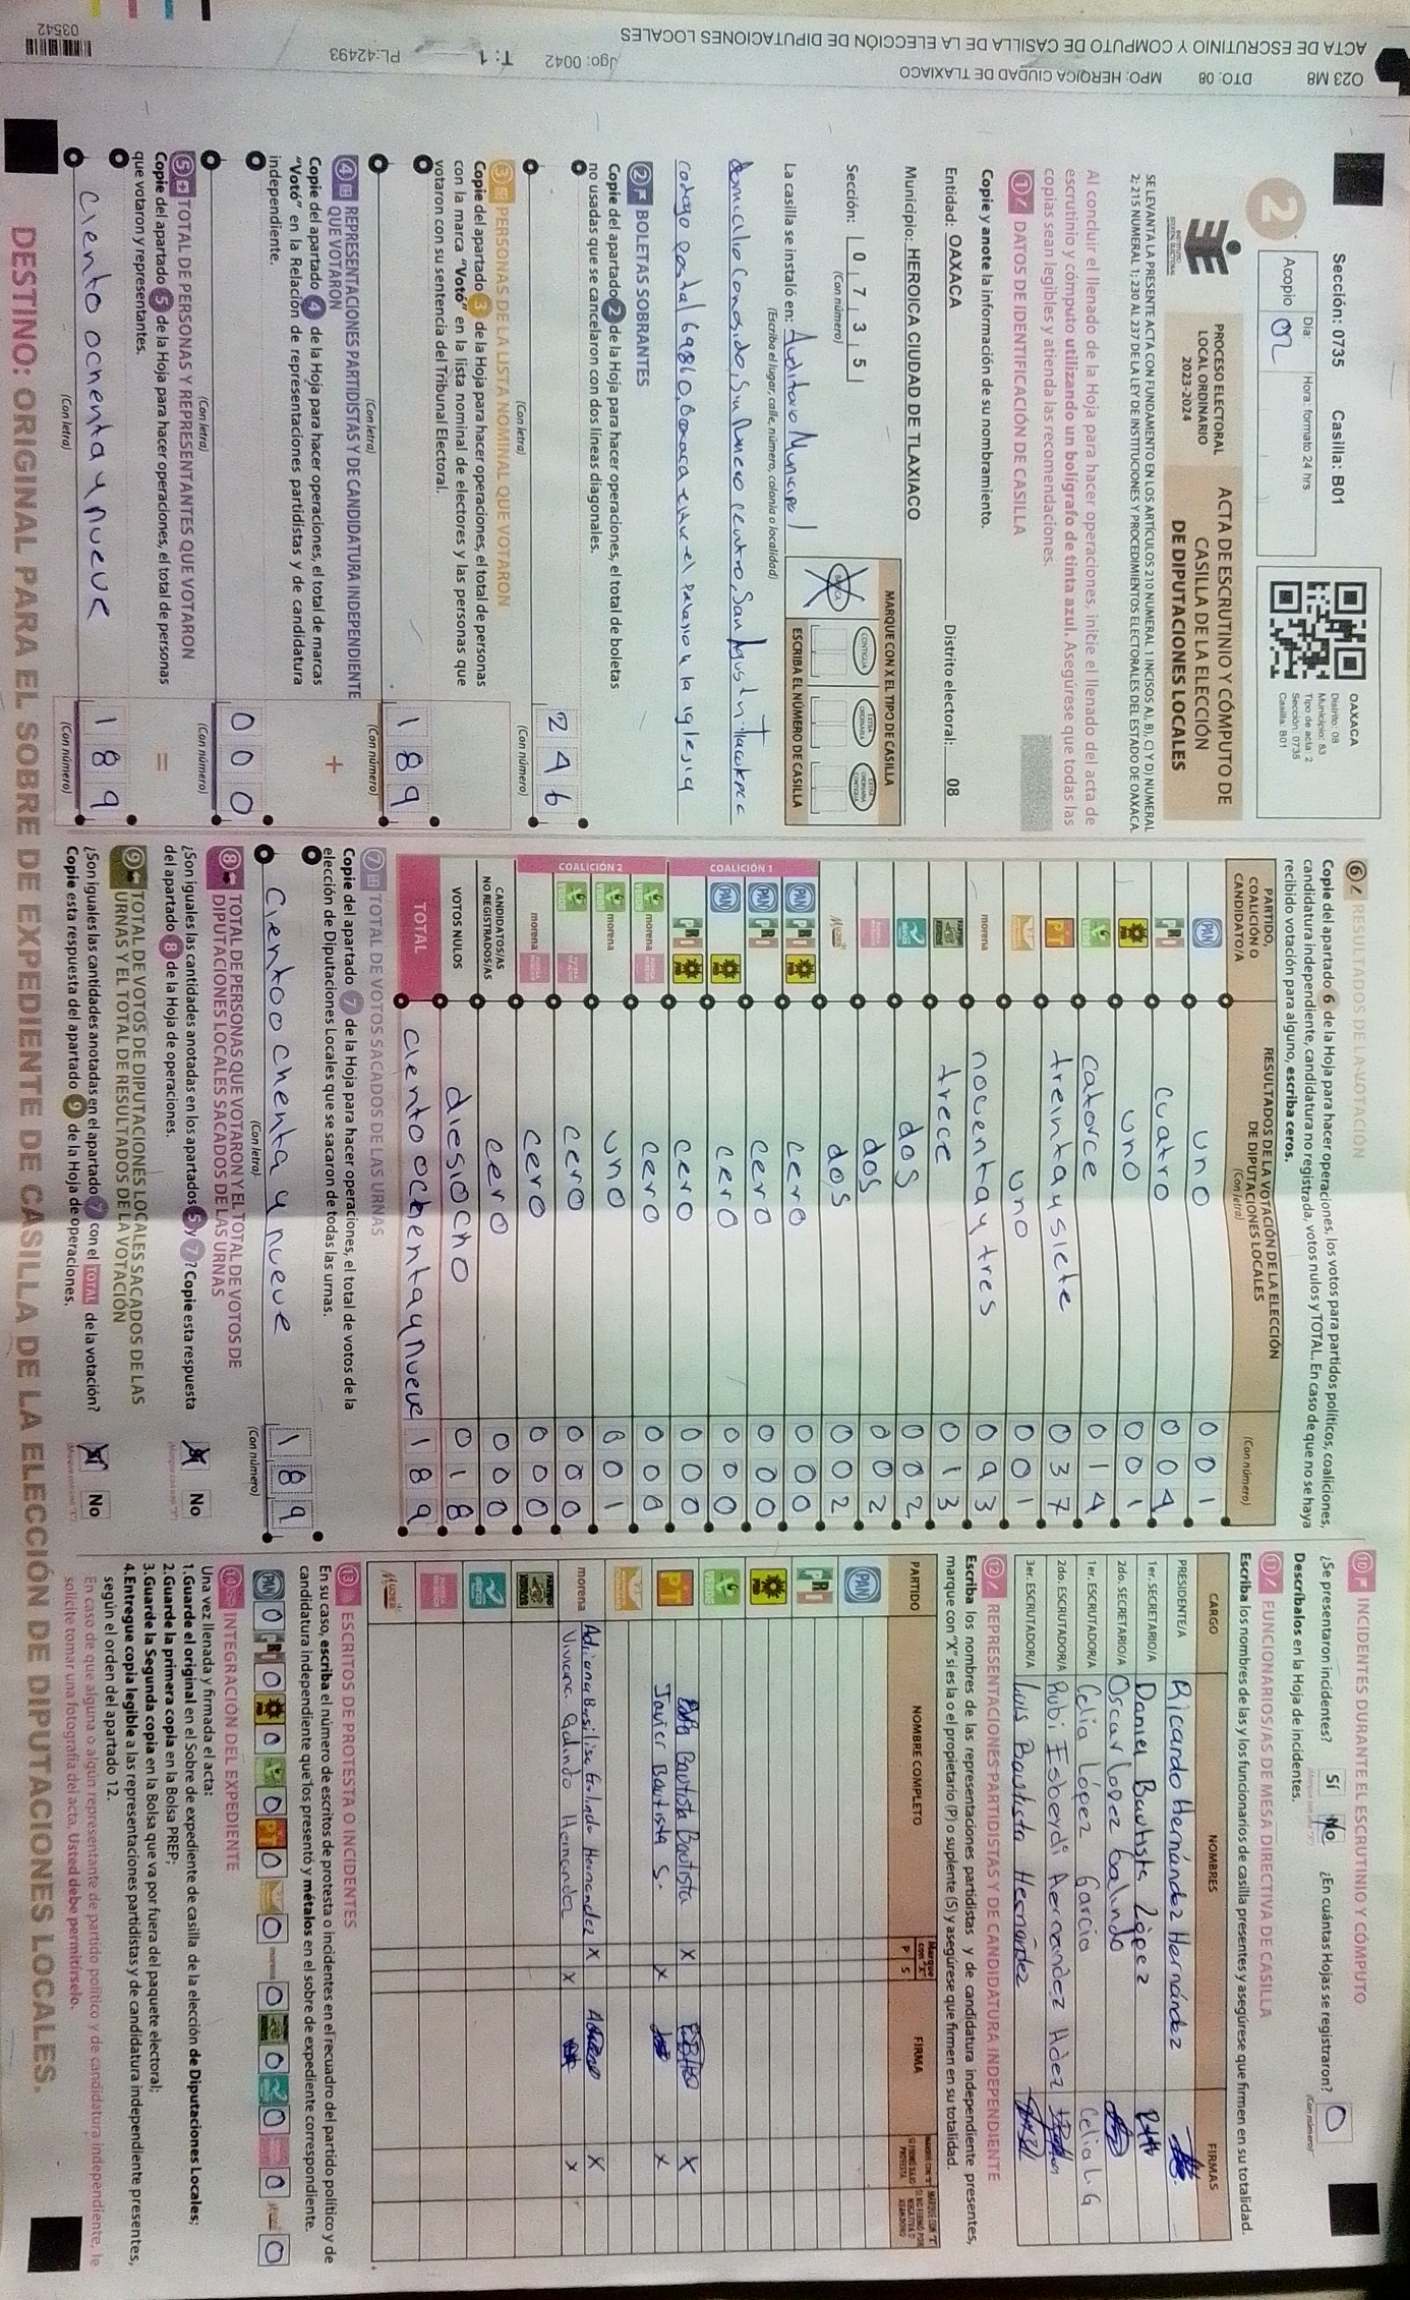 O23 M8 DTO: 08 MPO: HEROICA CIUDAD DE TLAXIACO Jgo: 0042 T: 1 PL:42493
ACTA DE ESCRUTINIO Y COMPUTO DE CASILLA DE LA ELECCIÓN DE DIPUTACIONES LOCALES
03542
Sección: 0735 Casilla: B01
2
Acopio
Día:
Hora: formato 24 hrs
OAXACA
Distrito: 08
Municipio: 83
Tipo de acta: 2
Sección: 0735
Casilla: B01
PROCESO ELECTORAL
LOCAL ORDINARIO
2023-2024
ACTA DE ESCRUTINIO Y CÓMPUTO DE
CASILLA DE LA ELECCIÓN
DE DIPUTACIONES LOCALES
SE LEVANTA LA PRESENTE ACTA CON FUNDAMENTO EN LOS ARTÍCULOS 210 NUMERAL 1 INCISOS A), B), C) Y D) NUMERAL
2; 215 NUMERAL 1; 230 AL 237 DE LA LEY DE INSTITUCIONES Y PROCEDIMIENTOS ELECTORALES DEL ESTADO DE OAXACA.
Al concluir el llenado de la Hoja para hacer operaciones, inicie el llenado del acta de
escrutinio y cómputo utilizando un bolígrafo de tinta azul. Asegúrese que todas las
copias sean legibles y atienda las recomendaciones.
1 DATOS DE IDENTIFICACIÓN DE CASILLA
Copie y anote la información de su nombramiento.
Entidad: OAXACA Distrito electoral: 08
Municipio: HEROICA CIUDAD DE TLAXIACO
Sección: 0 7 3 5
(Con número)
MARQUE CON X EL TIPO DE CASILLA
CONTIGUA
ESCRIBA EL NÚMERO DE CASILLA
La casilla se instaló en: Auditorio Municipal
(Escriba el lugar, calle, número, colonia o localidad)
domicilio Conosido, Sin Numero centro, San Agustin tlacotepec
codigo postal 69860, Oaxaca entre el Palacio y la iglesia
2 BOLETAS SOBRANTES
Copie del apartado 2 de la Hoja para hacer operaciones, el total de boletas
no usadas que se cancelaron con dos líneas diagonales.
246
(Con letra) (Con número)
3 PERSONAS DE LA LISTA NOMINAL QUE VOTARON
Copie del apartado 3 de la Hoja para hacer operaciones, el total de personas
con la marca "Votó" en la lista nominal de electores y las personas que
votaron con su sentencia del Tribunal Electoral.
189
(Con letra) (Con número)
4 REPRESENTACIONES PARTIDISTAS Y DE CANDIDATURA INDEPENDIENTE
QUE VOTARON +
Copie del apartado 4 de la Hoja para hacer operaciones, el total de marcas
"Votó" en la Relación de representaciones partidistas y de candidatura
independiente.
000
(Con letra) (Con número)
5 TOTAL DE PERSONAS Y REPRESENTANTES QUE VOTARON =
Copie del apartado 5 de la Hoja para hacer operaciones, el total de personas
que votaron y representantes.
ciento ochenta y nueve 189
(Con letra) (Con número)
6 RESULTADOS DE LA VOTACIÓN
Copie del apartado 6 de la Hoja para hacer operaciones, los votos para partidos políticos, coaliciones,
candidatura independiente, candidatura no registrada, votos nulos y TOTAL. En caso de que no se haya
recibido votación para alguno, escriba ceros.
PARTIDO,
COALICIÓN O
CANDIDATO/A
RESULTADOS DE LA VOTACIÓN DE LA ELECCIÓN
DE DIPUTACIONES LOCALES
(Con letra) (Con número)
PAN uno 001
PRI cuatro 004
PRD uno 001
VERDE catorce 014
PT treinta y siete 037
uno 001
morena noventa y tres 093
trece 013
dos 002
dos 002
Mujer dos 002
COALICIÓN 1
PAN PRI PRD cero 000
PAN PRI cero 000
PAN PRD cero 000
PRI PRD cero 000
COALICIÓN 2
VERDE morena cero 000
VERDE morena uno 001
VERDE cero 000
morena cero 000
CANDIDATOS/AS
NO REGISTRADOS/AS cero 000
VOTOS NULOS diesiocho 018
TOTAL ciento ochenta y nueve 189
7 TOTAL DE VOTOS SACADOS DE LAS URNAS
Copie del apartado 7 de la Hoja para hacer operaciones, el total de votos de la
elección de Diputaciones Locales que se sacaron de todas las urnas.
Ciento ochenta y nueve 189
(Con letra) (Con número)
8 TOTAL DE PERSONAS QUE VOTARON Y EL TOTAL DE VOTOS DE
DIPUTACIONES LOCALES SACADOS DE LAS URNAS
¿Son iguales las cantidades anotadas en los apartados 5 y 7? Copie esta respuesta
del apartado 8 de la Hoja de operaciones.
Sí No
9 TOTAL DE VOTOS DE DIPUTACIONES LOCALES SACADOS DE LAS
URNAS Y EL TOTAL DE RESULTADOS DE LA VOTACIÓN
¿Son iguales las cantidades anotadas en el apartado 7 con el TOTAL de la votación?
Copie esta respuesta del apartado 9 de la Hoja de operaciones.
Sí No
10 INCIDENTES DURANTE EL ESCRUTINIO Y CÓMPUTO
¿Se presentaron incidentes? Sí No ¿En cuántas Hojas se registraron? 0
Descríbalos en la Hoja de incidentes.
11 FUNCIONARIOS/AS DE MESA DIRECTIVA DE CASILLA
Escriba los nombres de las y los funcionarios de casilla presentes y asegúrese que firmen en su totalidad.
CARGO NOMBRES FIRMAS
PRESIDENTE/A Ricardo Hernández Hernández
1er. SECRETARIO/A Daniel Bautista López
2do. SECRETARIO/A Oscar Lopez Galindo
1er. ESCRUTADOR/A Celia López García Celia L.G
2do. ESCRUTADOR/A Rubi Esbeydi Hernandez Hdez
3er. ESCRUTADOR/A Luis Bautista Hernández
12 REPRESENTACIONES PARTIDISTAS Y DE CANDIDATURA INDEPENDIENTE
Escriba los nombres de las representaciones partidistas y de candidatura independiente presentes,
marque con "X" si es la o el propietario (P) o suplente (S) y asegúrese que firmen en su totalidad.
PARTIDO NOMBRE COMPLETO Marque con "X" P S FIRMA
PAN
PRI
PRD
VERDE
PT Bautista Bautista X X
Javier Bautista S. X X
morena Adriana Basilisa Galindo Hernandez X X
Viviana Galindo Hernandez X X
Mujer
13 ESCRITOS DE PROTESTA O INCIDENTES
En su caso, escriba el número de escritos de protesta o incidentes en el recuadro del partido político y de
candidatura independiente que los presentó y métalos en el sobre de expediente correspondiente.
PAN 0 PRI 0 PRD 0 0 PT 0 0 morena 0 0 0 0 0
14 INTEGRACIÓN DEL EXPEDIENTE
Una vez llenada y firmada el acta:
1. Guarde el original en el Sobre de expediente de casilla de la elección de Diputaciones Locales;
2. Guarde la primera copia en la Bolsa PREP;
3. Guarde la Segunda copia en la Bolsa que va por fuera del paquete electoral;
4. Entregue copia legible a las representaciones partidistas y de candidatura independiente presentes,
según el orden del apartado 12.
En caso de que alguna o algún representante de partido político y de candidatura independiente, le
solicite tomar una fotografía del acta, Usted debe permitírselo.
DESTINO: ORIGINAL PARA EL SOBRE DE EXPEDIENTE DE CASILLA DE LA ELECCIÓN DE DIPUTACIONES LOCALES.